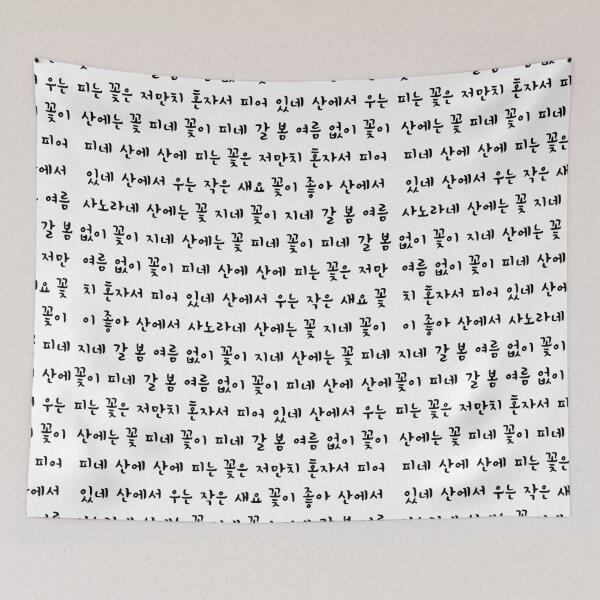 우는 피는 꽃은 저만치 혼자서 피어 있네 산에서 우는 피는 꽃은 저만치 혼자서 피
꽃이 산에는 꽃 피네 꽃이 피네 갈 봄 여름 없이 꽃이 산에는 꽃 피네 꽃이 피네
피어 피네 산에 산에 피는 꽃은 저만치 혼자서 피어 피네 산에 산에 피는 꽃은
에서 있네 산에서 우는 작은 새요 꽃이 좋아 산에서 있네 산에서 우는 작은 새
여름 사노라네 산에는 꽃 지네 꽃이 지네 갈 봄 여름 사노라네 산에는 꽃 지네
갈 봄 없이 꽃이 지네 산에는 꽃 피네 꽃이 피네 갈 봄 없이 꽃이 지네 산에는 꽃
저만 여름 없이 꽃이 피네 산에 산에 피는 꽃은 저만 여름 없이 꽃이 피네 산에
요 꽃 치 혼자서 피어 있네 산에서 우는 작은 새요 꽃 치 혼자서 피어 있네 산에
꽃이 이 좋아 산에서 사노라네 산에는 꽃 지네 꽃이 이 좋아 산에서 사노라네
피네 지네 갈 봄 여름 없이 꽃이 지네 산에는 꽃 피네 지네 갈 봄 여름 없이 꽃이
산에 꽃이 피네 갈 봄 여름 없이 꽃이 피네 산에 산에 꽃이 피네 갈 봄 여름 없이
우는 피는 꽃은 저만치 혼자서 피어 있네 산에서 우는 피는 꽃은 저만치 혼자서 피
꽃이 산에는 꽃 피네 꽃이 피네 갈 봄 여름 없이 꽃이 산에는 꽃 피네 꽃이 피네
피어 피네 산에 산에 피는 꽃은 저만치 혼자서 피어 피네 산에 산에 피는 꽃은
에서 있네 산에서 우는 작은 새요 꽃이 좋아 산에서 있네 산에서 우는 작은 새